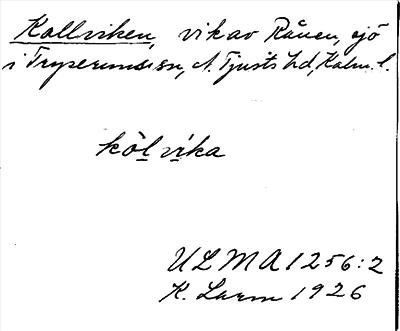 Kallviken, vik av Rånen, sjö
i Tryserums sn, N. Tjusts hd, Kalm. l.
kòl vika
ULMA 1256:2
K. Larm 1926